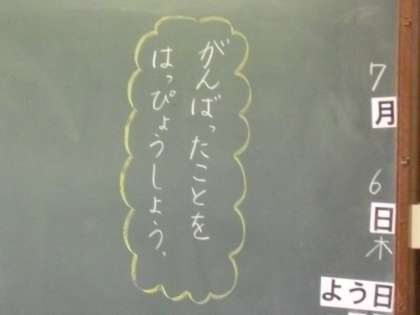 7月6日木よう日
がんばったことを
はっぴょうしよう。